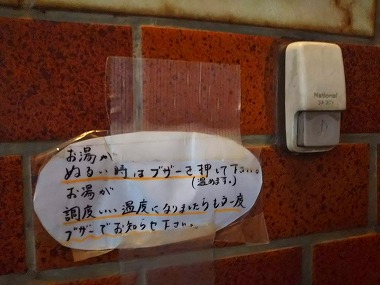 お湯が
ぬるい時はブザーを押して下さい。
(温めます。)
お湯が
調度いい温度になりましたらもう一度
ブザーでお知らせ下さい。
National